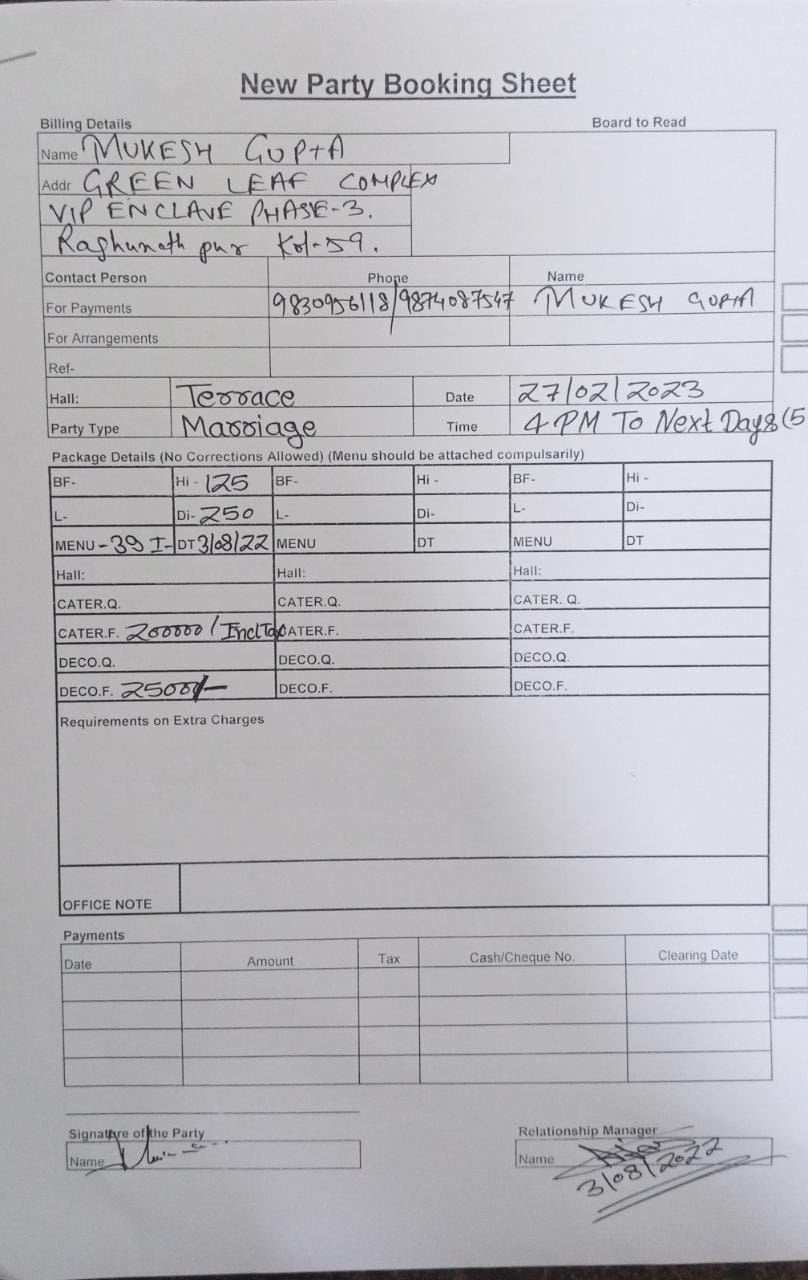 New Party Booking Sheet
Billing Details Board to Read
Name MUKESH GUPTA
Addr GREEN LEAF COMPLEX
VIP ENCLAVE PHASE-3.
Raghunath pur Kol-59.
Contact Person Phone Name
For Payments 9830956118/9874087547 MUKESH GUPTA
For Arrangements
Ref-
Hall: Terrace Date 27/02/2023
Party Type Marriage Time 4 PM To Next Day 8 (5
Package Details (No Corrections Allowed) (Menu should be attached compulsarily)
BF- Hi - 125 BF- Hi - BF- Hi -
L- Di- 250 L- Di- L- Di-
MENU - 39 I- DT 3/08/22 MENU DT MENU DT
Hall: Hall: Hall:
CATER.Q. CATER.Q. CATER. Q.
CATER.F. 200000/ Incl Tax CATER.F. CATER.F.
DECO.Q. DECO.Q. DECO.Q.
DECO.F. DECO.F. DECO.F.
Requirements on Extra Charges
OFFICE NOTE
Payments
Date Amount Tax Cash/Cheque No. Clearing Date
Signature of the Party Relationship Manager
Name Name
3/08/2022